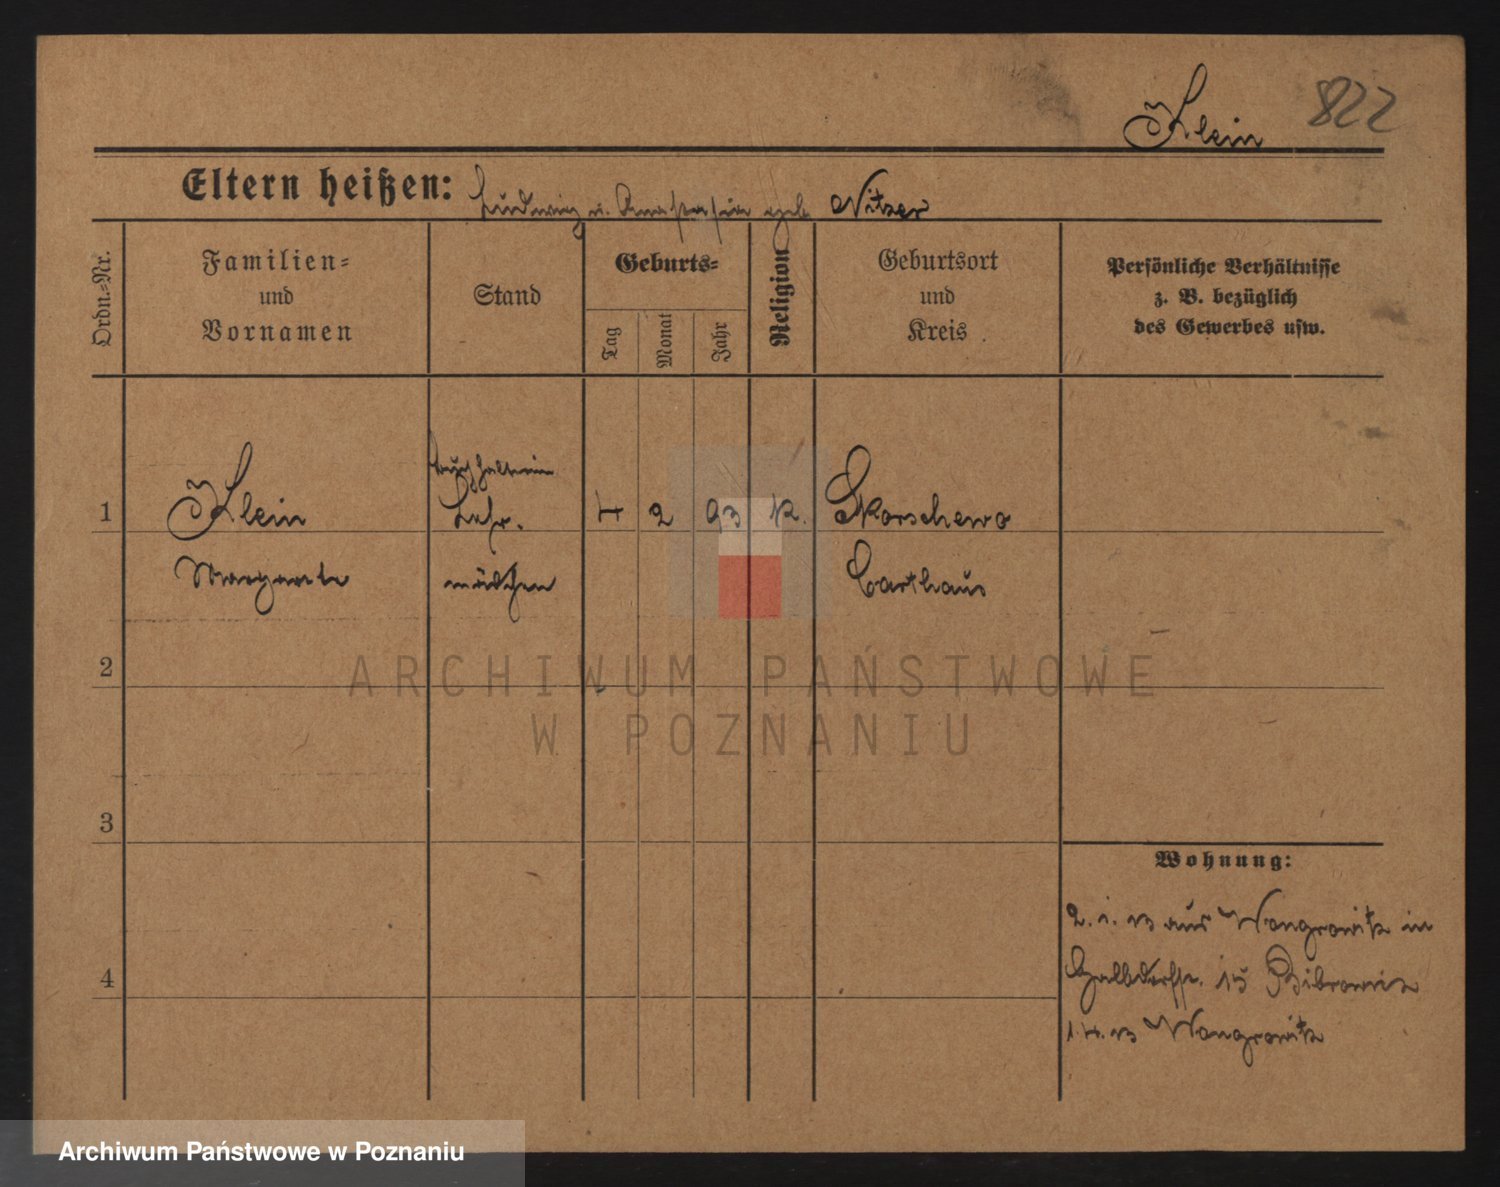 Klein 822
Eltern heißen: Ludwig u. Anastasia geb. Nitzer
Ordn.-Nr.
Familien-
und
Vornamen
Stand
Geburts-
Tag
Monat
Jahr
Religion
Geburtsort
und
Kreis
Persönliche Verhältnisse
z. B. bezüglich
des Gewerbes usw.
Buchhalterin
1 Klein Lehr. 4 2 93 K. Skorschewo
Margarete mädchen Carthaus
2
3
4
Wohnung:
2. 1. 13 aus Wongrowitz in
15
1. 4. 13 Wongrowitz
ARCHIWUM PAŃSTWOWE
W POZNANIU
Archiwum Państwowe w Poznaniu